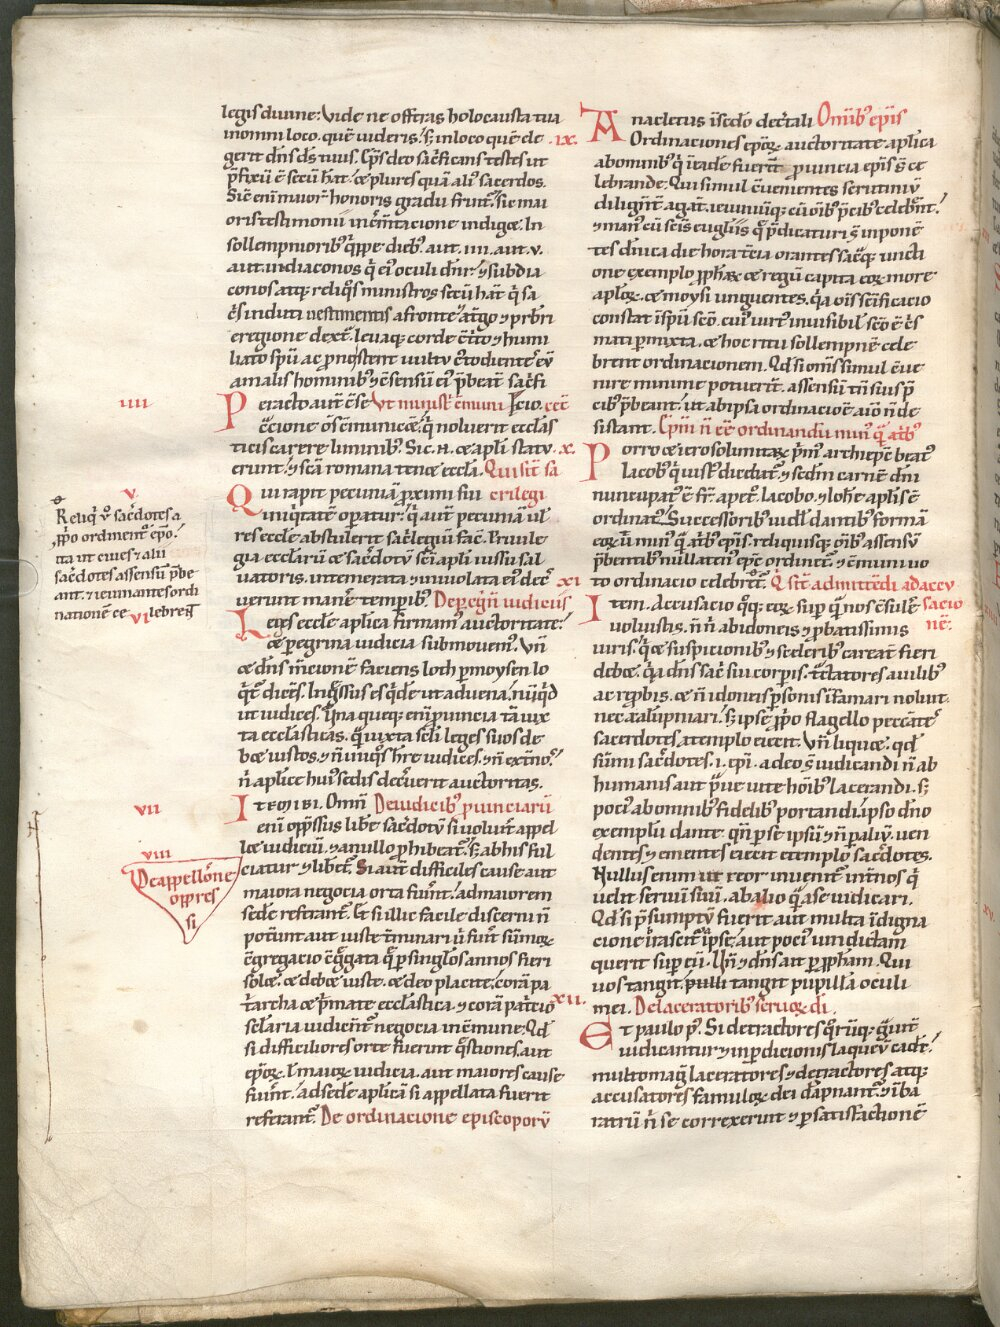 legis diuine: Vide ne offeras holocausta tua
in omni loco. que uideris. s; in loco que ele
gerit dn̄s ds̄ tuus. Ep̄s deo sac̄ficans testes ut
p̄fixū ē secū hat̄. ce plures quā ali sacerdos.
Sic̄ eni maior honoris gradu fruit̄. sic mai
oris testimonii inc̄m̄tacione indiget. In
sollempniorib; q̄ppe dieb; aut .iiii. aut .v.
aut .vii. diaconos q̄ ei oculi dn̄r: ⁊ subdia
conos atq; reliq̄s ministros secū hat̄ q̄ sa
c̄s induti uestimentis a fronte ⁊ at̄go ⁊ p̄rbri
e regione dext̄. leuaq; corde c̄t̄to ⁊ humi
liato sp̄u ac pno stent uultu c̄todiente eū
a malis hominib; ⁊ c̄sensū ei p̄beat̄ sac̄fi
cio.
Vt minist̄ c̄muni cēt
iiii
Peracto aut̄ c̄se
c̄cione om̄s c̄municet̄. q̄ noluerit eccl̄as
ticis carere liminib;. Sic .n. ce apl̄i statu
erunt. ⁊ sc̄a romana tenet eccl̄a.
Qui sit̄ sa
crilegi
v
Qui rapit pecuniā proximi sui
iniq̄tatē operatur. q̄ aut̄ pecuniā ul
res eccl̄e abstulerit sac̄legiū fac̄. Priuile
gia eccl̄arū ce sac̄dotū sc̄i apl̄i iussu sal
uatoris. intemerata ⁊ inuiolata ei dec̄
uerunt manēe temp̄ib;.
De peḡn̄ iudiciis
Reliq̄ u̅ sac̄dotes a
p̄p̄o ordinent̄ ep̄o.
ita ut ciues ⁊ alii
sac̄dotes assensū p̄be
ant. ⁊ ieiunantes ordi
nationē ce lebrent
vi
Leges eccl̄e aplica firmam auctoritate.
ce peregrina iudicia submouem. Vn̄
ce dn̄s m̄cionē faciens loth p moysen lo
q̄t̄ dices. Ingssus es q̄de ut aduena. nūq̄d
ut iudices. Vna queq; eni puincia tā iux
ta eccl̄asticas. q̄ iuxta sc̄li leges suos de
bet iustos. ⁊ n̄ iniq̄s h̄re iudices. ⁊ n̄ ext̄no.
n̄ aplice hui sedis decuerit auctoritas.
vii
De iudicib; puinciarū
Item ibi. Omn̄
eni opp̄ssus libe sac̄dotū si uoluit̄ appel
let iudiciū. ⁊ a nullo phibeat̄. s; ab his ful
ciatur ⁊ libet̄. Si aut̄ difficiles cause aut
viii
De appellōne
oppres
si
maiora negocia orta fuint̄. ad maiorem
sede referant̄. Et si illic facile discerni n̄
potint aut iuste t̄minari ū fuit̄ sūmor̄
c̄gregacio c̄ḡgata q̄ p singlos annos fieri
solet. ce debet iuste. ce deo placite. corā pa
t̄archa ce p̄mate eccl̄astica. ⁊ corā pat̄cio
sc̄laria iudicēt̄ negocia in c̄mune. Qd̄
si difficiliores orte fuerint q̄stiones. aut
ep̄or̄. l maior̄ iudicia. aut maiores cause
fuint̄. ad sede aplicā si appellata fuerit
referant̄. De ordinacione episcoporū
ix.
Anacletus i sc̄do decͬtali Omib; epīs
Ordinaciones ep̄or̄ auctoritate aplica
ab omnib; q̄ i eade fuerit̄ prouincia epīs s̄ ce
lebrande. Qui simul c̄uenientes scrutiniū
diligint̄ agāt. ieiuniūq; cū oib; p̄cib; celebint̄.
⁊ man; cū sc̄is eugliis q̄ p̄dicaturi s̄ inponē
tes dn̄ica die hora t̄cia orantes sac̄q; uncti
one exemplo pphar̄ ce regū capita eor̄ more
aplor̄. ce moysi unguentes. q̄a ois sc̄ificacio
constat i spū sc̄o. cui uirt; inuisibil sc̄o ē c̄s
mati pmixta. ce hoc ritu sollempnē cele
brent ordinacionem. Qd̄ si om̄s simul c̄ue
nire minime potuerit̄. assensū tn̄ suis p̄
cib; p̄beant. ut ab ipsa ordinacioē aīo n̄ de
sistant. Ep̄m n̄ ēē ordinandū min; q̄ at̄b;
x.
Porro ce ierosolimitar̄ p̄m archiep̄c beat̄
Iacob; q̄ iust̄ diceбat̄. ⁊ sc̄dm carnē dn̄i
nuncupat̄ ē fr̄. a pet̄. Iacobo. ⁊ Ioh̄e aplis ē
ordinat̄. Successorib; uidl̄ dantib; formā
eor̄ ū min; q̄ at̄b; epīs reliquisq; oib; assensū
p̄bentib; nullaten; ep̄c ordinet̄. ⁊ c̄muni uo
to ordinacio celebret̄. Q sit̄ admittēdi ad accu
sacio
nē.
xi
Item. Accusacio q̄q; eor̄ sup q̄ nos c̄sulē
uoluistis. n̄ n̄ ab idoneis ⁊ pbatissimis
uiris. q̄ ce suspicionib; ⁊ sceleribus careat̄ fieri
debet. q̄a dn̄s sac̄ sui corpis. t̄ctatores a uilib;
ac rep̄bis. ce n̄ idoneis psonis i famari noluit
nec calūpniari. s; ipse p̄p̄o flagello peccāte
sacerdotes a templo eiecit. Vn̄ liquet. qd̄
sūmi sac̄dotes .i. ep̄i. a deo s̄ iudicandi n̄ ab
humanis aut p̄ue uite hoib; lacerandi. s;
poci; ab omnib; fidelib; portandi. ipso dn̄o
exemplū dante. qn̄ p se ipsū ⁊ n̄ p aliū. uen
dentes ⁊ ementes eiecit e templo sac̄dotes.
Nullus enim ut reor inuenit̄ int̄ nos q̄
uelit seruū suū. ab alio q̄ a se iudicari.
Qd̄ si p̄sumptū fuerit aut multa idigna
cione irascit̄ ipse. aut poci; uindictam
querit sup eū. Un̄ ⁊ dn̄s ait p ppham. Qui
uos tangit. pulli tangit pupillā oculi
mei. De laceratorib; seruor̄ di.
xii.
Et paulo p;. Si detractores q̄rūq; ḡuit̄
iudicantur ⁊ in pdicionis laqueū cadt̄.
multo mag̅ laceratores ⁊ detractores atq;
accusatores famulor̄ dei dāpnant̄. ⁊ i ba
ratrū n̄ se correxerint ⁊ p satisfactionē